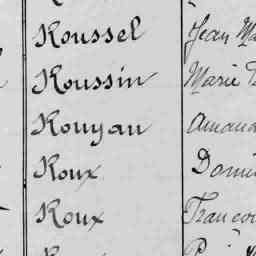 Roussel Jean Ma
Roussin Marie
Rouyau Amand
Roux Domi
Roux Franço